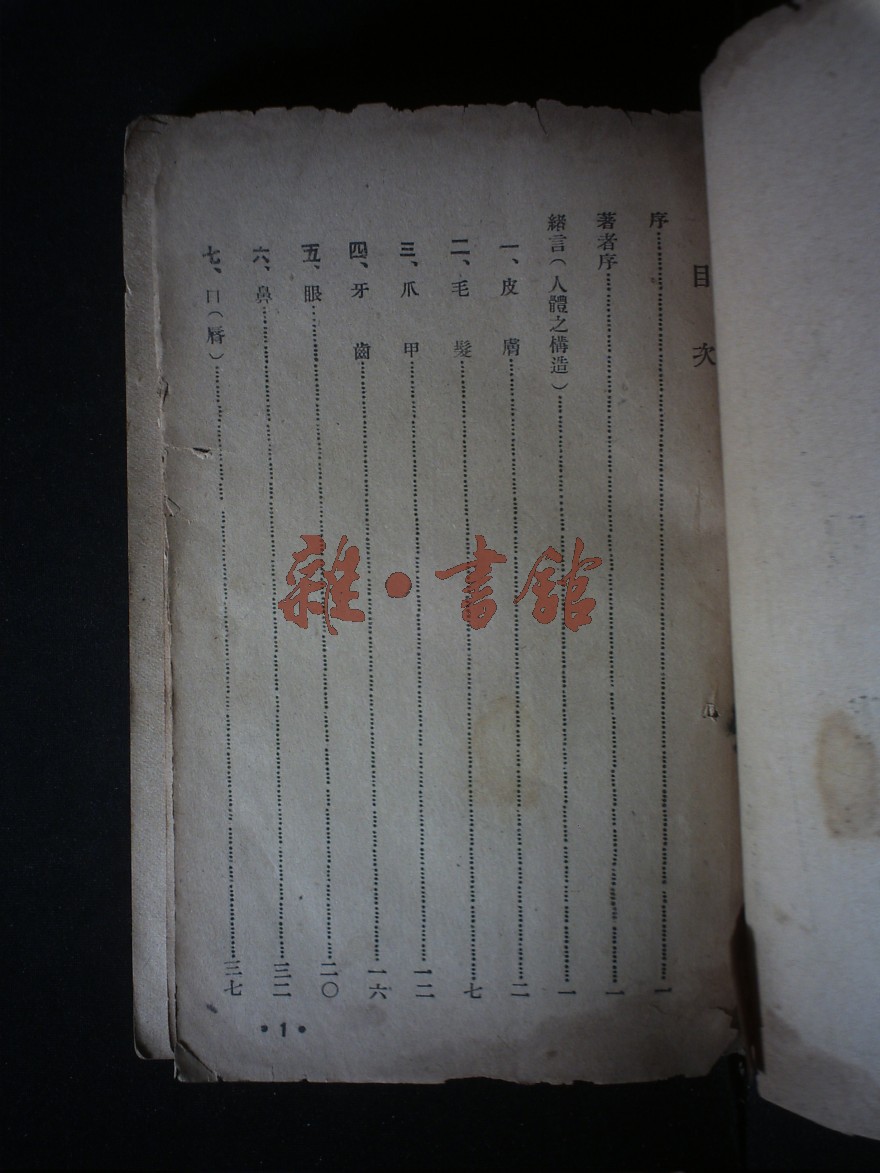 目次
序……一
著者序……一
緒言（人體之構造）……一
一、皮膚……二
二、毛髮……七
三、爪甲……一二
四、牙齒……一六
五、眼……二〇
六、鼻……三二
七、口（唇）……三七
•1•
雜•書館